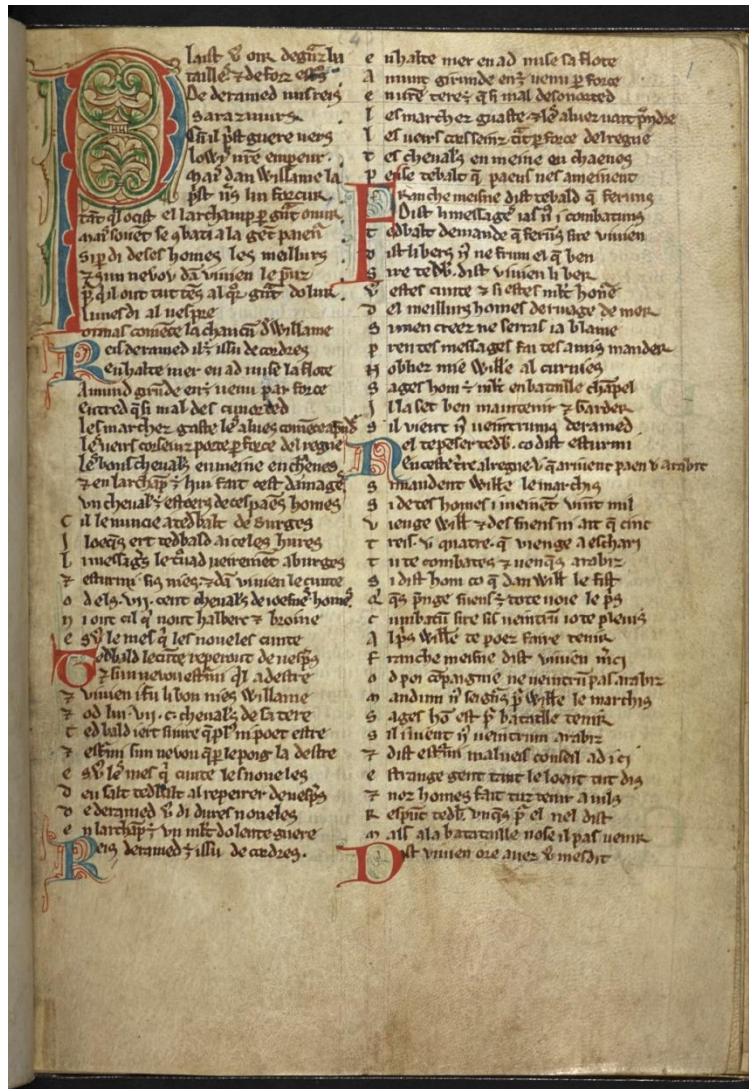 (4)
1
Plaist vos oir degñz ba
taille᷒ ⁊ de forz
De deramed uns reis
Sarazinurs
Cũ il p̃st guere uers
lowis nr̃e empeur.
Mais dan willame la
p̃st uers lui forcur
tãt q̃l ocist el larchamp ꝑ g̃nt onur
mais souent se ꝯbati a la gẽt paienur
si ꝑdi de ses homes les meillurs
⁊ sun nevov dã vivien le p̃uz
ꝑ q̃ il out tut tẽs al q̃r g̃nt dolur
lunesdi al uespre
oimas comẽce la chancũ d willame
Reis deramed il ẽ issu de cordres
En halte mer en ad mise sa flote
Amund girũde en ẽ uenu par force
Entred q̃ si mal des cunorded
les marchez guaste les aluez comẽce a p̃ndre
les ueirs cors seinz porte ꝑ force del regne
les bons cheuals en meine en cheines
⁊ en larchãp ẽ hui fait cest damage
vn cheual᷒ estoers de ces paẽs homes
Cil le nuncie a tedbalt de burges
Iloeq̃s ert tedbald a iceles hures
li messag᷒ le tũad ueirem̃t a burges
⁊ esturmi sis niẽs ⁊ dã vivien le cunte
od els .vii. cent cheuals de ioefne home᷒
ni out cil q̃ nout halberc ⁊ broine
es vos le mes q̃ les noueles cunte
Tedbald le cũte reperout de uesp̃s
⁊ sun nevou estmi q̃l adestre
⁊ vivien i fu li bon niẽs willame
⁊ od lui .vii. c. cheual᷒ de sa tere
tedbald iert si iure q̃ pl᷒ ni poet estre
⁊ estmi sun nevou q̃ ꝑ le poig la destre
es vos le mes q̃ cunte les noueles
deu salt tedbalt al repeirer de uesp̃s
de deramed vos di dures noueles
en larchãp ẽ vn mlt dolente guere
Reis deramed ẽ issu de cordres.
en halte mer en ad mise sa flote
Amunt girunde en ẽ uenu ꝑ force
en ure tere ẽ q̃ si mal desonorded
les marchez guaste ⁊ les aluez uait p̃ndre
les ueirs cors seinz tit ꝑ force del regne
tes cheuals en meine en chaenes
pense tebalt q̃ paens nes ameinent
Franche meisne dist tebald q̃ feruns
Dist li messag᷒ ia les nus i combatuns
tedbalt demande q̃ feruns sire vivien
dist li bers nus ne frum el q̃ ben
sire tedb. dist vivien li ber
vos estes cunte ⁊ si estes mlt honẽ
del meillurs homes de riuage de mer
si men creez ne serras ia blame
pren tes messages fai tes amis mander
Nobher mie Wille᷒ al curnies
sages hom ẽ mlt en bataille chãpel
il la set ben maintenir ⁊ garder
sil vient nus ueintruns deramed
Nel te penser tedb. co dist esturmi
en ceste tere al regne v q̃ ariuent paen v arabit
si mandent Wille᷒ le marchis
si de tes homes i meinent vint mil
vienge Will᷒ ⁊ des suens ni ait q̃ cinc
treis. v quatre. q̃ vienge a eschari
tu te combates ⁊ uenq̃s arabiz
si dist hom co q̃ dan Will᷒ le fist
q̃ q̃s p̃nge suens ẽ tote uoie le p̃s
cumbatũ sire sis ueintrũ io te pleuis
al p̃s Wille᷒ te poez faire tenir
franche meisne dist vivien m̃ci
od poi cõpaignie ne ueintrũ pas arabiz
mandum nus seign᷒s p̃ Wille᷒ le marchis
sages hõ est p̃ bataille tenir
sil i uient nus ueintrum arabiz
⁊ dist estmi malueis conseil ad ici
estrange gent tant le loent tut dis
⁊ noz homes fait tuz tenir a uils
Respunt tedb. unq̃s p̃ el nel dist
mais a la bataille nose il pas uenir
Dist vivien ore auez vos mesdit